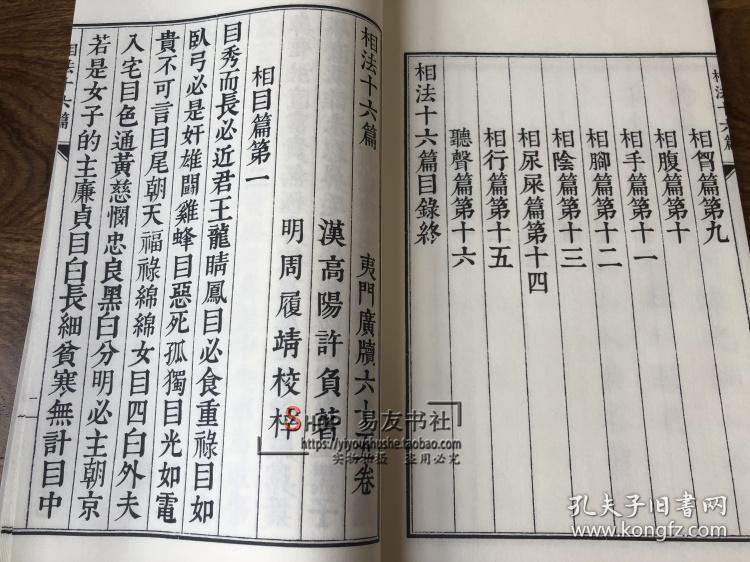 相法十六篇
相胷篇第九
相腹篇第十
相手篇第十一
相腳篇第十二
相陰篇第十三
相尿屎篇第十四
相行篇第十五
聽聲篇第十六
相法十六篇目錄終
相法十六篇 夷門廣牘六十五卷
漢高陽許負著
明周履靖校梓
相目篇第一
目秀而長必近君王龍睛鳳目必食重祿目如
臥弓必是奸雄鬪雞蜂目惡死孤獨目光如電
貴不可言目尾朝天福祿綿綿女目四白外夫
入宅目色通黃慈憫忠良黑白分明必主朝京
若是女子的主廉貞目白長細貧寒無計目中
相法十六篇
一
易友书社
https://yiyoushushe.taobao.com
实物拍摄 盗用必究
孔夫子旧书网
www.kongfz.com